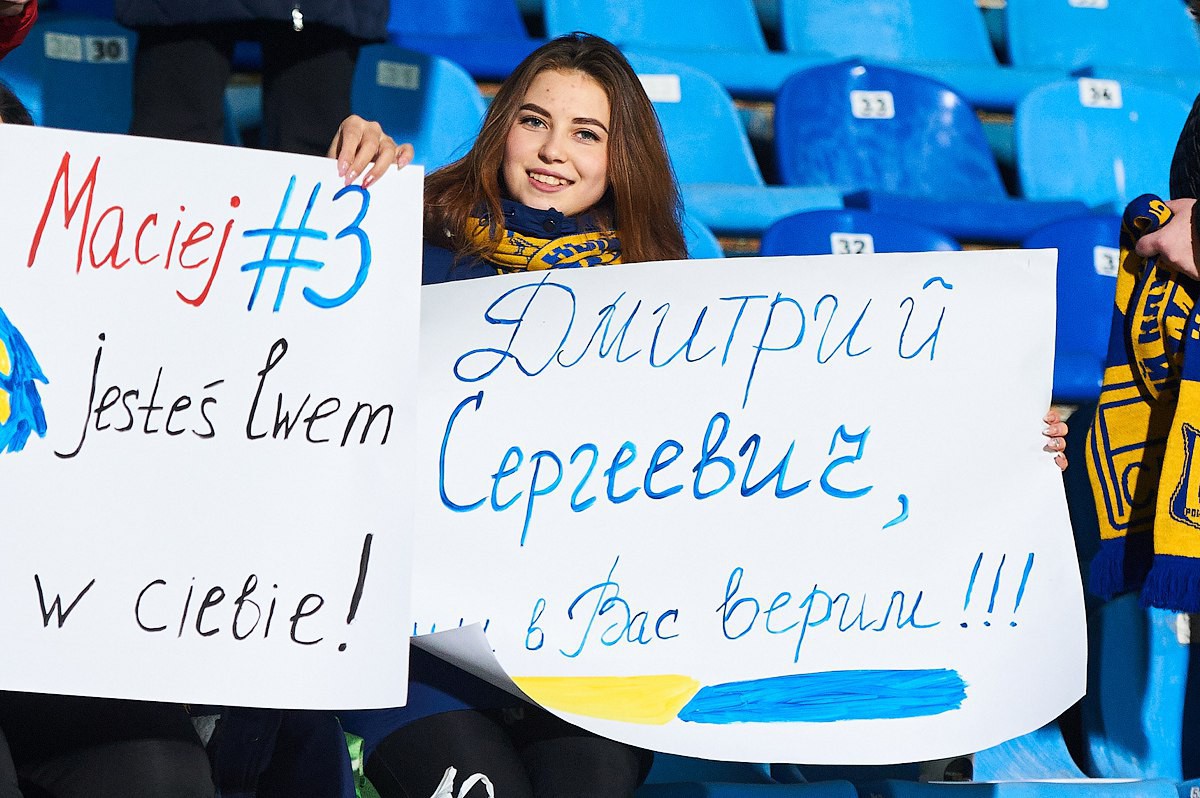 30
31
33
34
32
31
Maciej #3
jesteś lwem
w ciebie!
Дмитрий
Сергеевич,
в Вас верим!!!